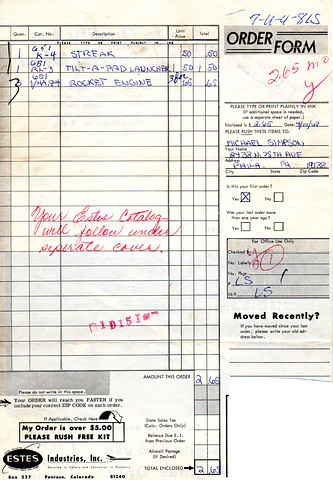 7-11-4-865
ORDER FORM
265 mo
y
Quan. Cat. No. Description Unit Price Total
PLEASE TYPE OR PRINT PLAINLY IN INK
1 651 K-4 STREAK .50 .50
1 651 TILT-A-PAD LAUNCHER 1 50 1 50
3 651 ROCKET ENGINE 3 for .65 .65
Your Estes Catalog
will follow under
seperate cover.
PLEASE TYPE OR PRINT PLAINLY IN INK
(If additional space is needed,
use a separate sheet of paper.)
Enclosed is $ 2.65 Date
PLEASE RUSH THESE ITEMS TO:
MICHAEL SIMPSON
Your Name
8438 N. 25TH AVE
Address
PHILA. PA
City State Zip Code
Is this your first order?
Yes X No
Was your last order more
than one year ago?
Yes No
For Office Use Only
Checked by
No. Labels 1
No. Pkgs. 1
LS
N/R LS
Moved Recently?
If you have moved since your last
order, please write your old
address below.
Please do not write in this space.
AMOUNT THIS ORDER 2 65
Your ORDER will reach you FASTER if you
include your correct ZIP CODE on each order.
If Applicable, Check Here
My Order is over $5.00
PLEASE RUSH FREE KIT
State Sales Tax
(Colo. Orders Only)
Balance Due E.I.
from Previous Order
Airmail Postage
(If Desired)
TOTAL ENCLOSED 2 65
ESTES Industries, Inc.
Devoted to Safety and Education in Rocketry
Box 227 Penrose, Colorado 81240